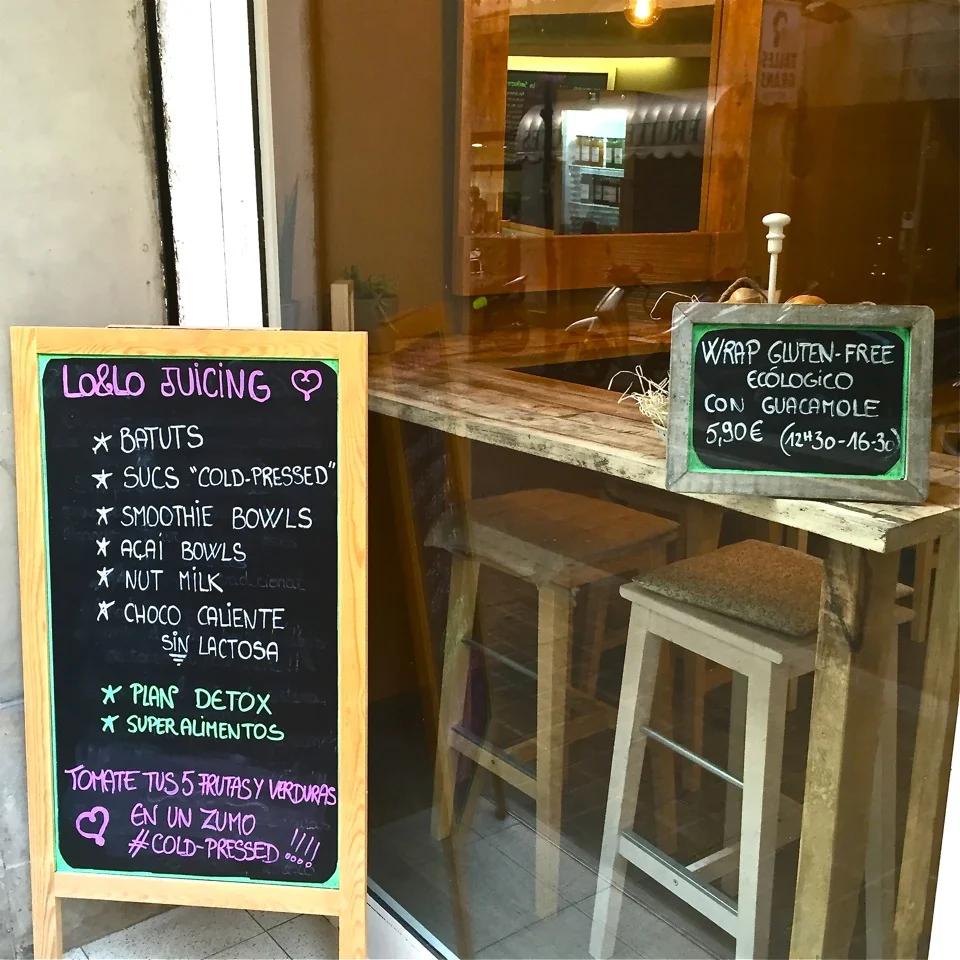 LO&LO JUICING
BATUTS
SUCS "COLD-PRESSED"
SMOOTHIE BOWLS
AÇAÍ BOWLS
NUT MILK
CHOCO CALIENTE
SIN LACTOSA
PLAN DETOX
SUPERALIMENTOS
TOMATE TUS 5 FRUTAS Y VERDURAS
EN UN ZUMO
#COLD-PRESSED !!!!
WRAP GLUTEN-FREE
ECÓLOGICO
CON GUACAMOLE
5,90€ (12H30-16·30)
TALLES
GRANS